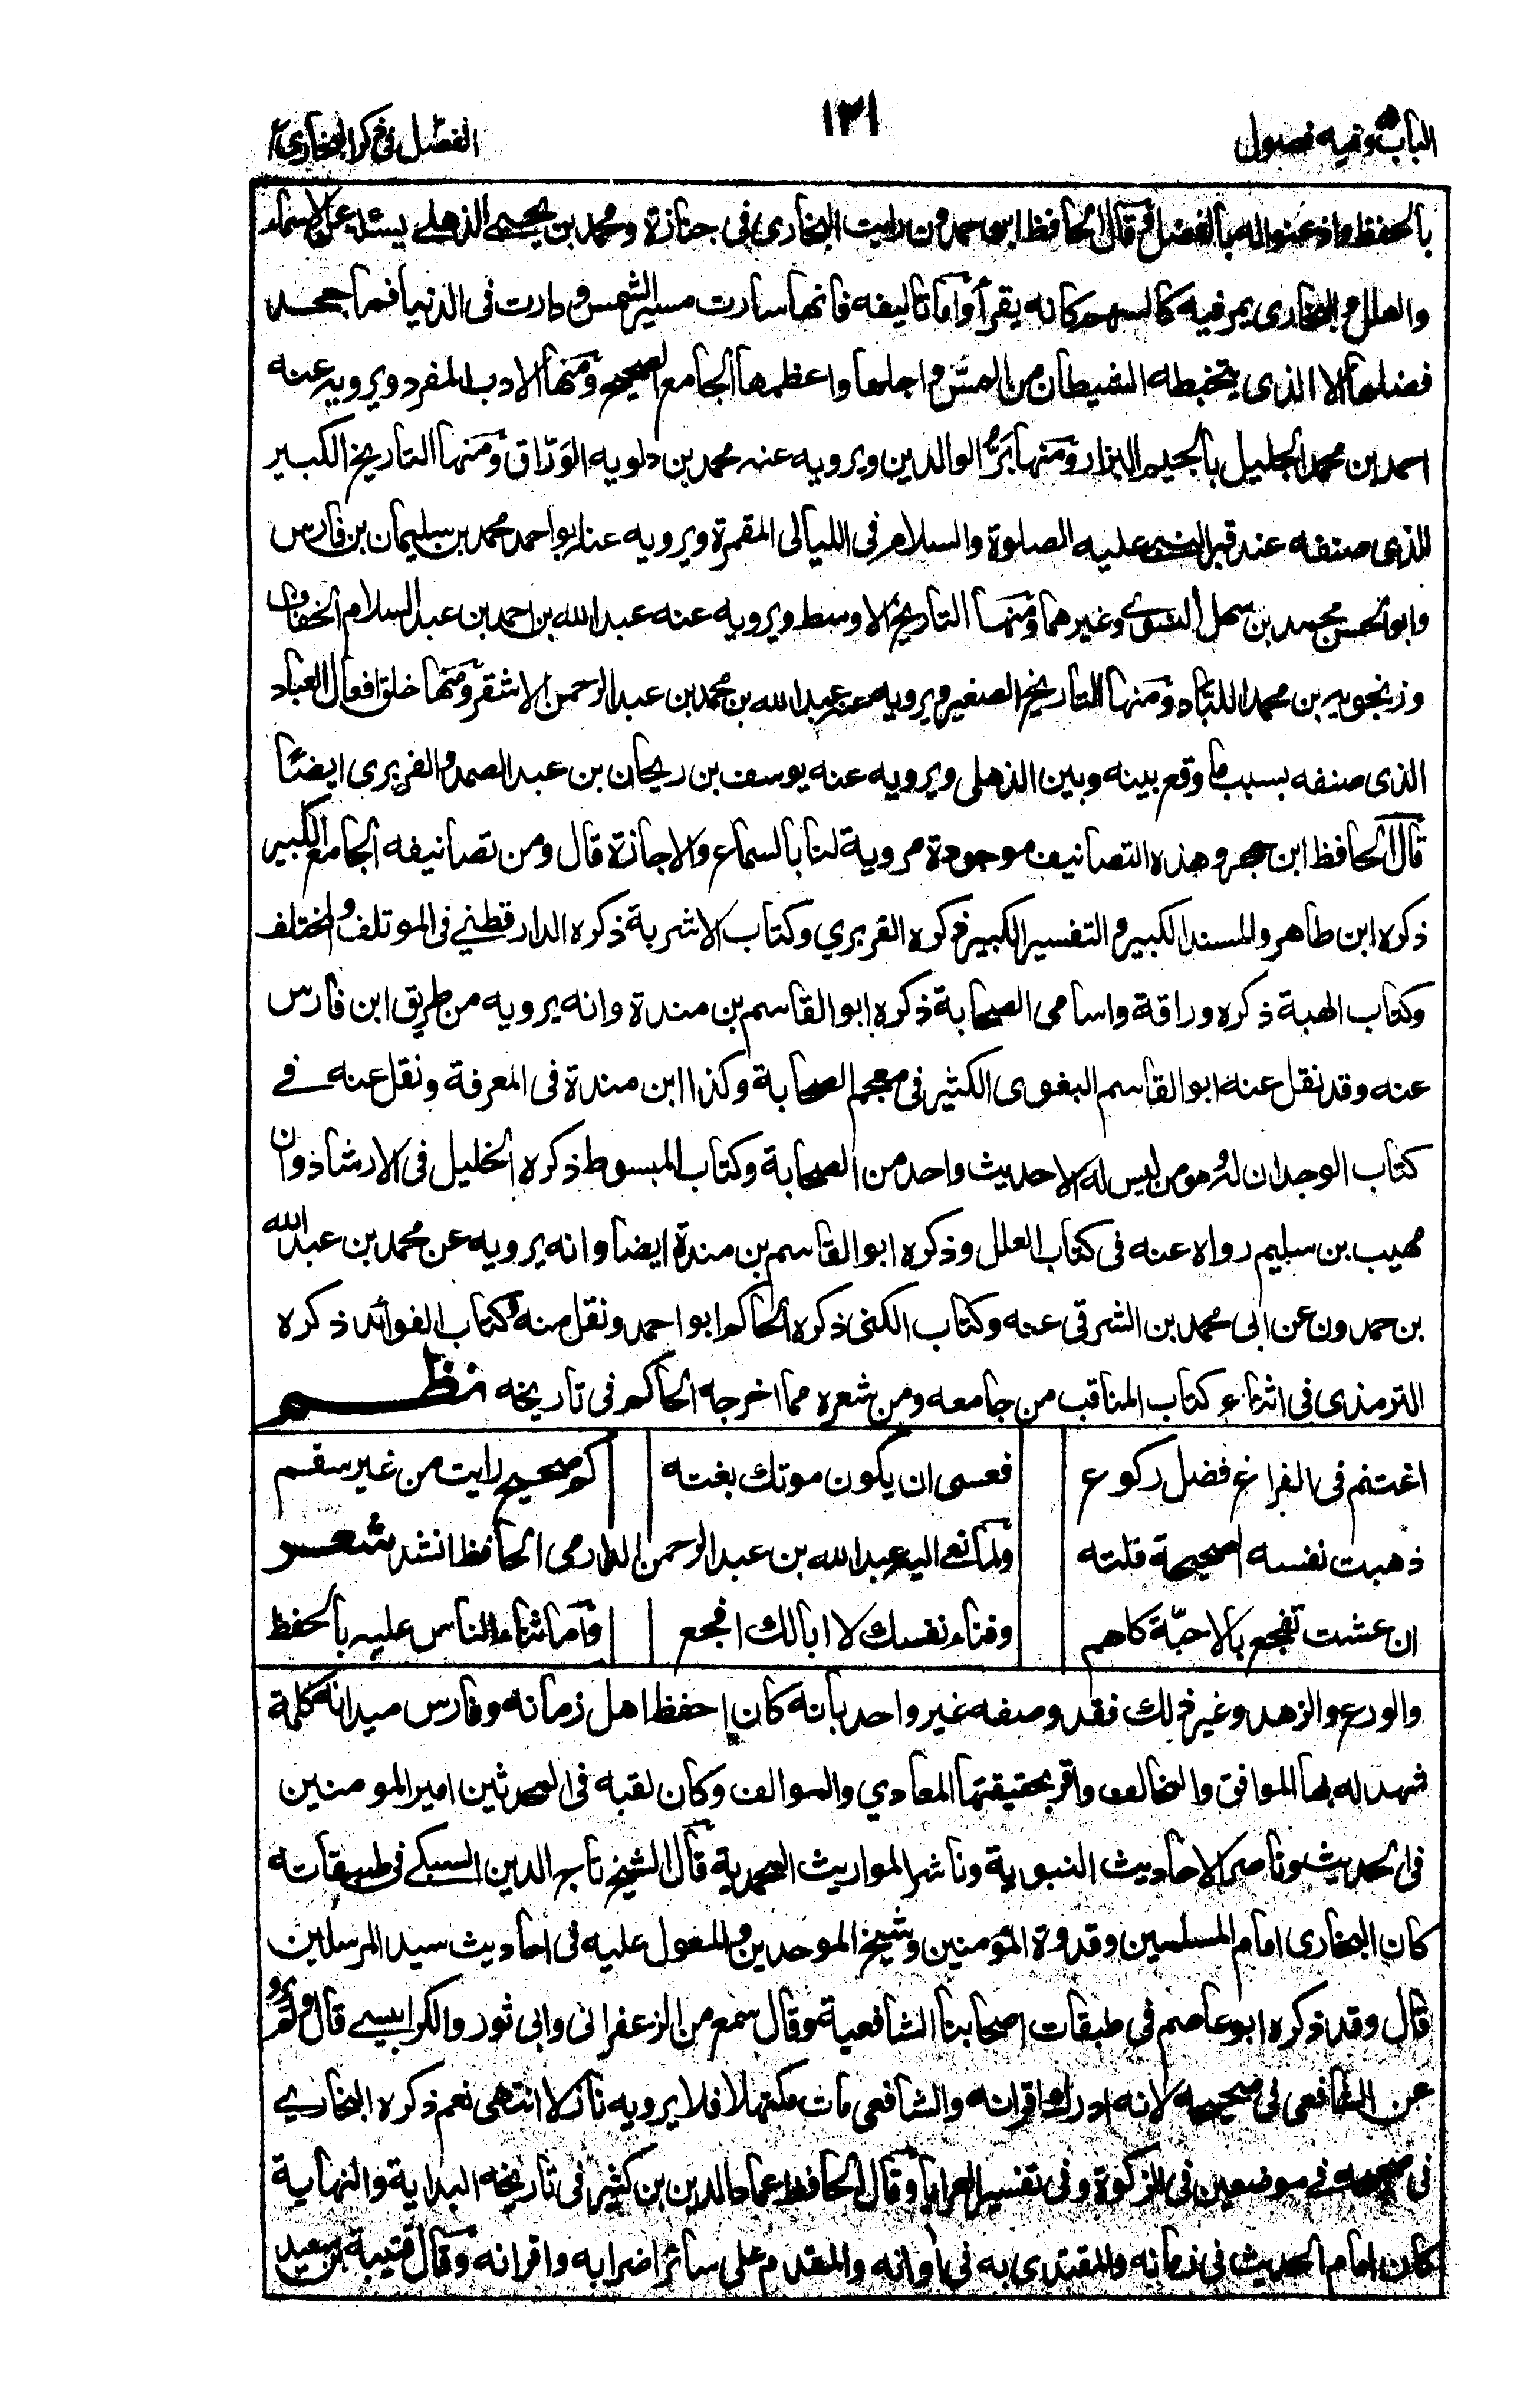 الباب ٥ وفيه فصول
١٢١
الفصل في ذكر البخاري
بالحفظ واذعنوا له بالفضل قال الحافظ ابو احمد رايت البخارى فى جنازة ومحمد بن يحيى الذهلى يسئله عن الاسماء
والعلل والبخارى يمر فيه كالسهم كانه يقرأ واما تاليفه فانها سارت مسير الشمس ودارت فى الدنيا فما جحد
فضلها الا الذى يتخبطه الشيطان من المس واجلها واعظمها الجامع الصحيح ومنها الادب المفرد ويرويه عنه
احمد بن محمد الجليل بالجيم البزار ومنها برّ الوالدين ويرويه عنه محمد بن دلويه الورّاق ومنها التاريخ الكبير
الذى صنفه عند قبر النبى عليه الصلوة والسلام فى الليالى المقمرة ويرويه عنه ابو احمد محمد بن سليمان بن فارس
وابو الحسن محمد بن سهل النسوى وغيرهما ومنها التاريخ الاوسط ويرويه عنه عبد الله بن احمد بن عبد السلام الخفاف
وزنجويه بن محمد اللبّاد ومنها التاريخ الصغير ويرويه عنه عبد الله بن محمد بن عبد الرحمن الاشقر ومنها خلق افعال العباد
الذى صنفه بسبب ما وقع بينه وبين الذهلى ويرويه عنه يوسف بن ريحان بن عبد الصمد والفربرى ايضًا
قال الحافظ ابن حجر وهذه التصانيف موجودة مروية لنا بالسماع والاجازة قال ومن تصانيفه الجامع الكبير
ذكره ابن طاهر والمسند الكبير والتفسير الكبير ذكره الفربري وكتاب الاشربة ذكره الدارقطنى فى الموتلف والمختلف
وكتاب الهبة ذكره وراقة واسامى الصحابة ذكره ابو القاسم بن مندة وانه يرويه من طريق ابن فارس
عنه وقد نقل عنه ابو القاسم البغوى الكثير فى معجم الصحابة وكذا ابن مندة فى المعرفة ونقل عنه فى
كتاب الوجدان له وهو من ليس له الا حديث واحد من الصحابة وكتاب المبسوط ذكره الخليل فى الارشاد وان
مهيب بن سليم رواه عنه فى كتاب العلل وذكره ابو القاسم بن مندة ايضا وانه يرويه عن محمد بن عبد الله
بن حمدون عن ابى محمد بن الشرقى عنه وكتاب الكنى ذكره الحاكم ابو احمد ونقل منه وكتاب الفوائد ذكره
الترمذى فى اثناء كتاب المناقب من جامعه ومن شعره مما اخرجه الحاكم فى تاريخه نظم
اغتنم فى الفراغ فضل ركوع فعسى ان يكون موتك بغته كم صحيح رايت من غير سقم
ذهبت نفسه الصحيحة فلته ولما نعى اليه عبد الله بن عبد الرحمن الدارمى الحافظ انشد شعر
ان عشت تفجع بالاحبّة كلهم وفناء نفسك لا ابالك افجع واما ثناء الناس عليه بالحفظ
والورع والزهد وغير ذلك فقد وصفه غير واحد بانه كان احفظ اهل زمانه وفارس ميدانه كلمة
شهد له بها الموافق والمخالف واقر بحقيقتها المعادي والموالف وكان لقبه فى المحدثين امير المومنين
فى الحديث وناصر الاحاديث النبوية وناشر المواريث المحمدية قال الشيخ تاج الدين السبكى فى طبقاته
كان البخارى امام المسلمين وقدوة المؤمنين وشيخ الموحدين والمعول عليه فى احاديث سيد المرسلين
قال وقد ذكره ابو عاصم فى طبقات اصحابنا الشافعية وقال سمع من الزعفرانى وابى ثور والكرابيسى قال ولم يرو
عن الشافعى فى صحيحه لانه ادرك اقرانه والشافعى مات مكتهلا فلا يرويه نازلا انتهى نعم ذكره البخارى
فى صحيحه فى موضعين فى الزكوة وفى تفسير العرايا وقال الحافظ عماد الدين بن كثير فى تاريخه البداية والنهاية
كان امام الحديث فى زمانه والمقتدى به فى اوانه والمقدم على سائر اضرابه واقرانه وقال قتيبة بن سعيد